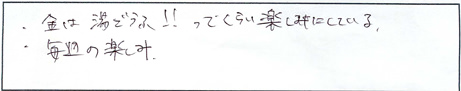 ・金は湯どうふ!! ってくらい楽しみにしている。
・毎週の楽しみ.